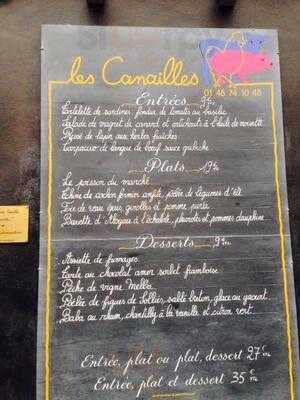 les Canailles
01 48 74 10 48
Entrées 9€
Tartelette de sardines, fondue de tomates au basilic
Salade de magret de canard et artichauts à l'huile de noisette
Pressé de lapin aux herbes fraîches
Carpaccio de langue de bœuf sauce gribiche
Plats 19€
Le poisson du marché
Echine de cochon fermier confite, poêlée de légumes d'été
Foie de veau, girolles et pommes purée
Bavette d'Aloyau à l'échalote, pleurotes et pommes dauphine
Desserts 9€
Assiette de fromages
Tarte au chocolat amer sorbet framboise
Pêche de vigne Melba
Poêlée de figues de Solliès, sablé breton, glace au yaourt
Baba au rhum, chantilly à la vanille et citron vert
Entrée, plat ou plat, dessert 27€
Entrée, plat et dessert 35€